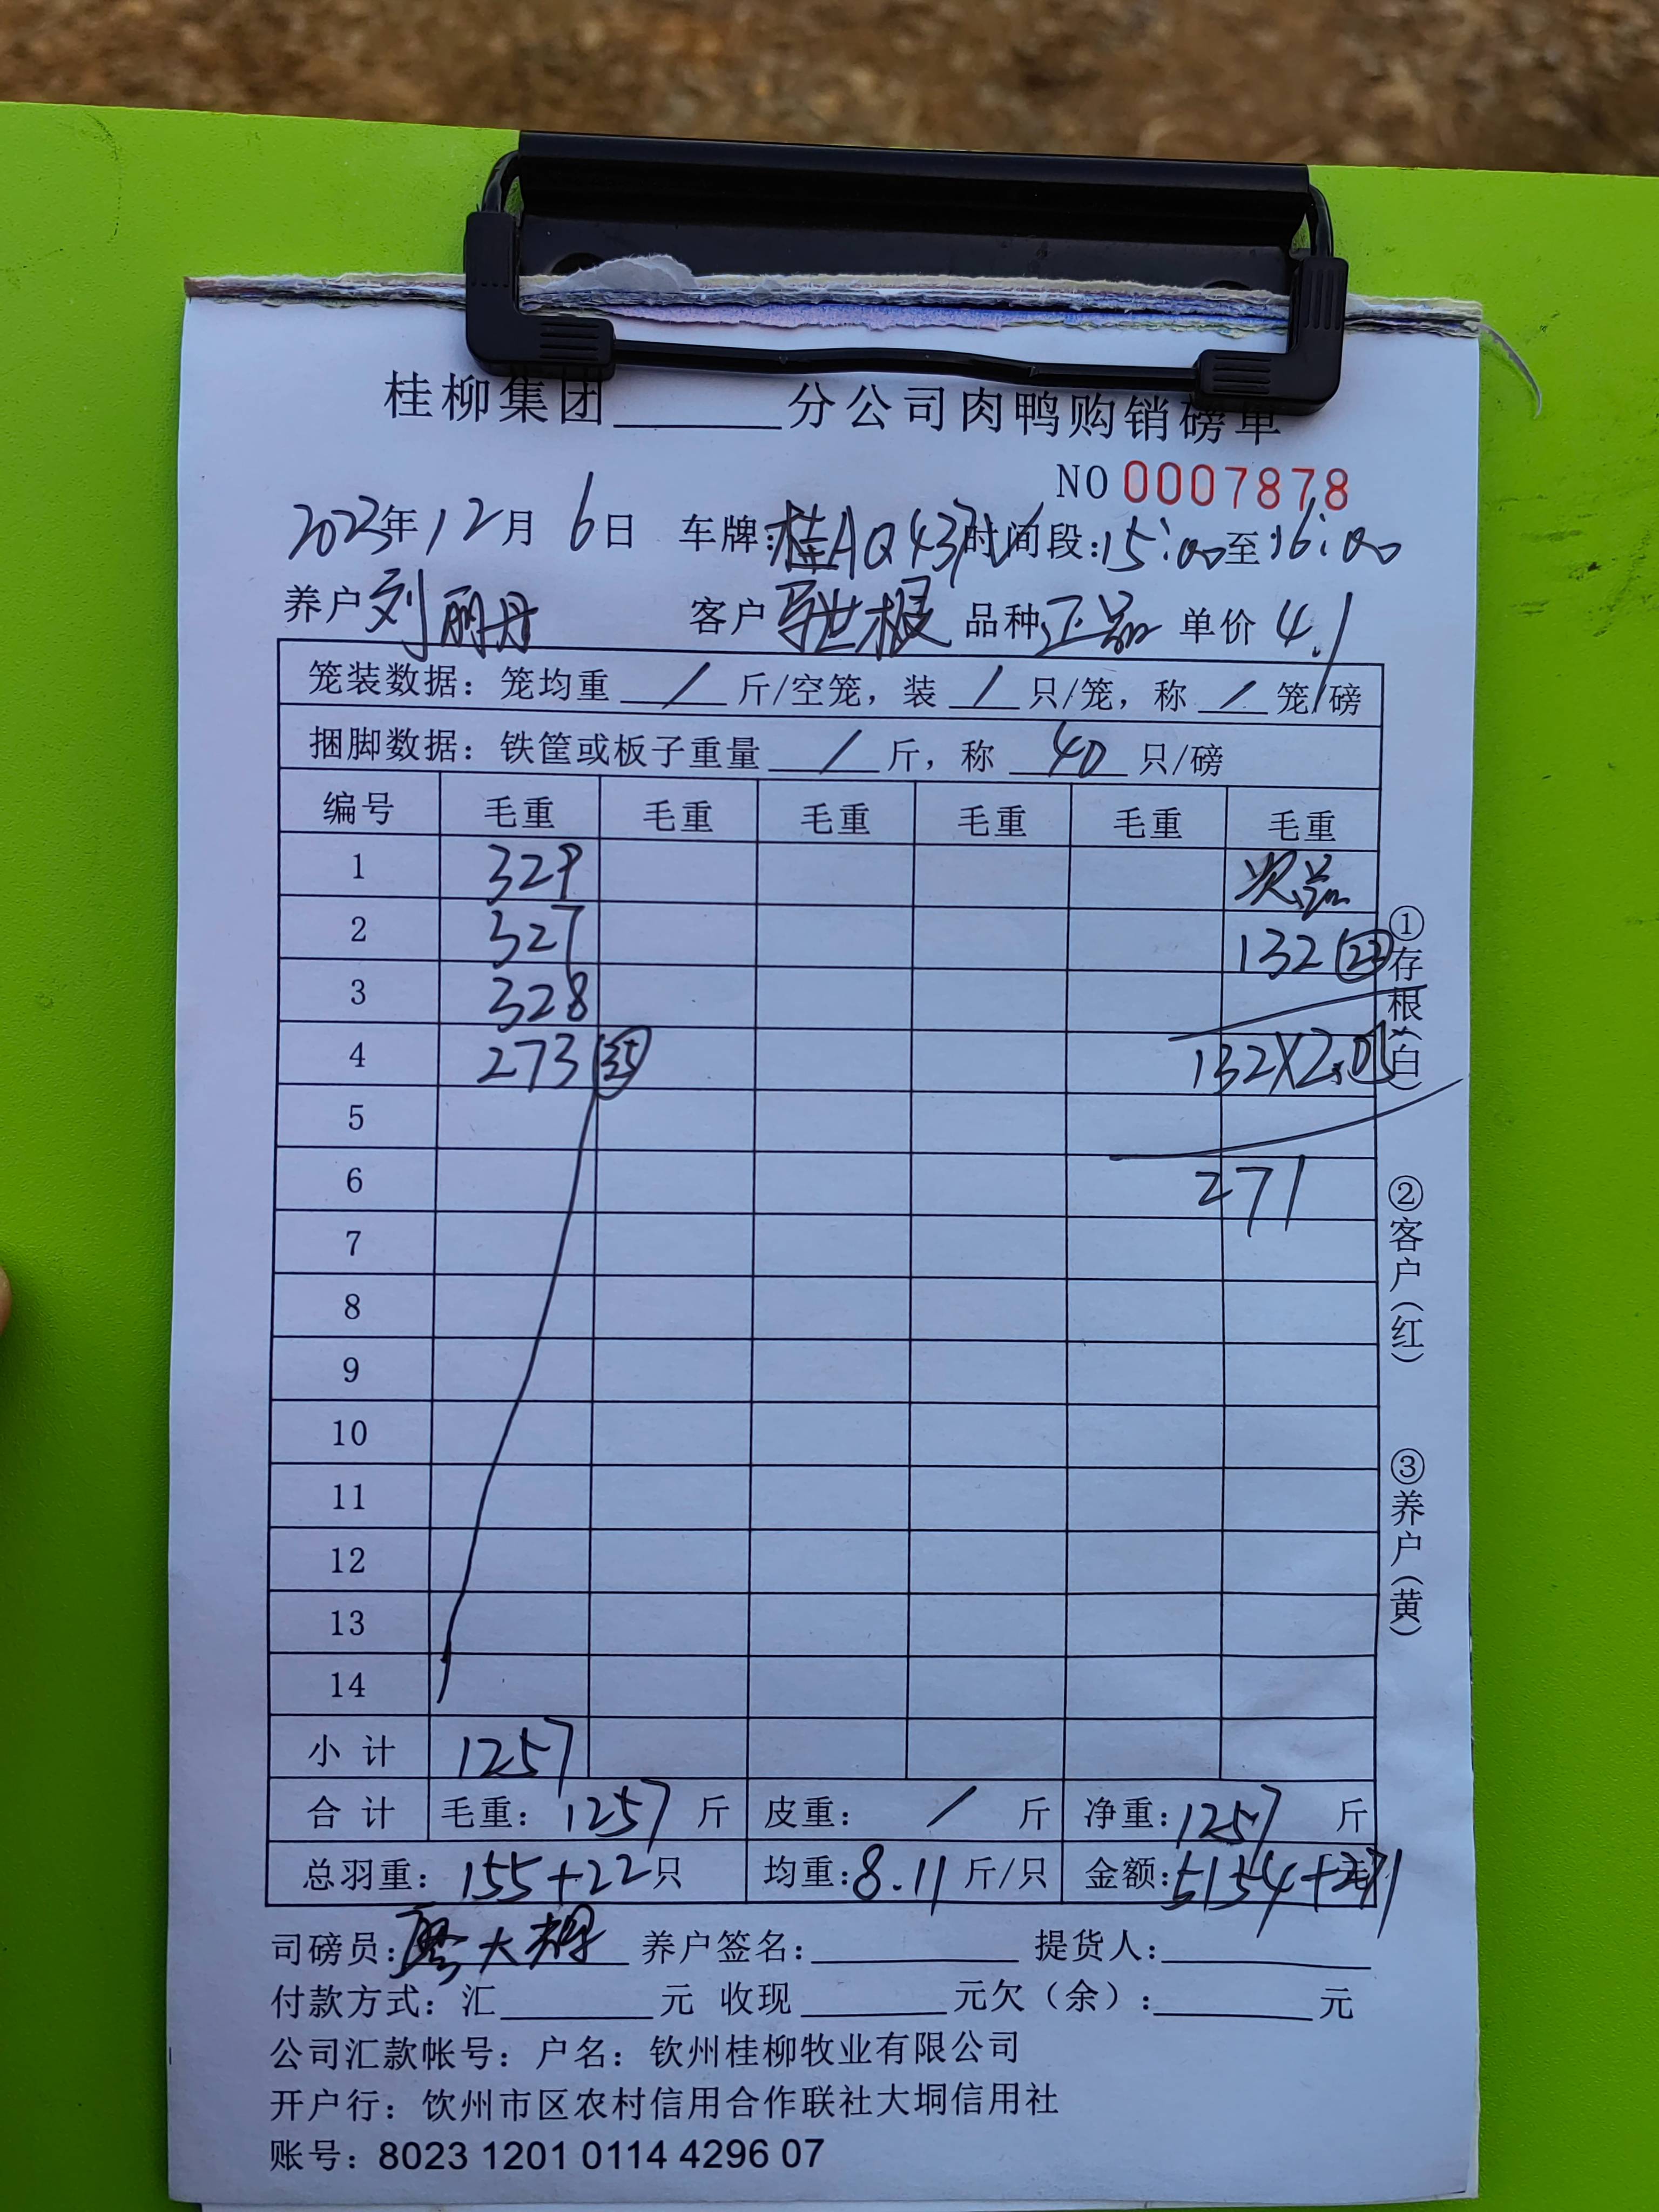 桂柳集团______分公司肉鸭购销磅单
NO 0007878
2023年12月6日 车牌:桂AQ437 时间段:15:00至16:00
养户 刘丽丹 客户 世根 品种 正品 单价 4.1
笼装数据：笼均重 / 斤/空笼，装 / 只/笼，称 / 笼/磅
捆脚数据：铁筐或板子重量 / 斤，称 40 只/磅
编号 毛重 毛重 毛重 毛重 毛重 毛重
1 329 次品
2 327 132 22
3 328
4 273 35 132X2.05
5
6 271
7
8
9
10
11
12
13
14
小计 1257
合计 毛重：1257 斤 皮重： / 斤 净重：1257 斤
总羽重：155+22只 均重:8.11斤/只 金额:5154+271
司磅员: 大 养户签名：______ 提货人：______
付款方式：汇______元 收现______元欠（余）：______元
公司汇款帐号：户名：钦州桂柳牧业有限公司
开户行：饮州市区农村信用合作联社大垌信用社
账号：8023 1201 0114 4296 07
①存根（白）
②客户（红）
③养户（黄）